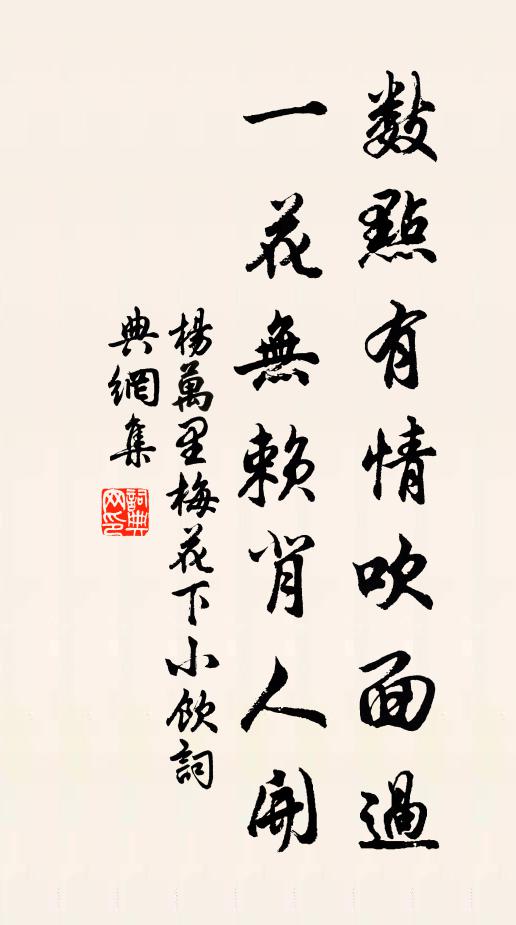 數點有情吹面過
一花無賴背人開
楊萬里梅花下小飲詞
典網集
詞典
网印